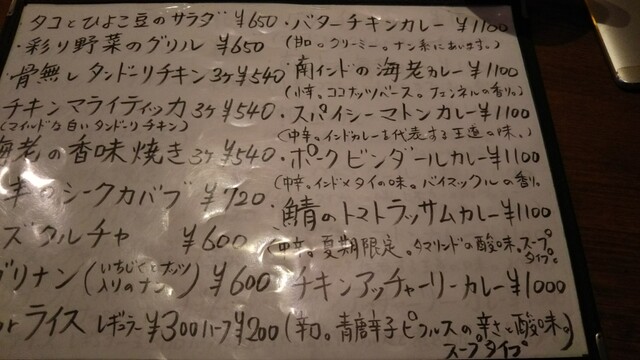 ・タコとひよこ豆のサラダ ¥650
・彩り野菜のグリル ¥650
・骨無しタンドーリチキン3ケ¥540
チキンマライティッカ3ケ¥540
(マイルドな白いタンドーリチキン)
海老の香味焼き3ケ¥540
シークカバブ ¥720
ズタルチャ ¥600
グリナン(いちじくとナッツ入りのナン)¥600
or ライス レギュラー¥300 ハーフ¥200
・バターチキンカレー¥1100
(甘口。クリーミー。ナン系にあいます。)
・南インドの海老カレー¥1100
(小辛、ココナッツベース。フェンネルの香り。)
・スパイシーマトンカレー¥1100
(中辛。インドカレーを代表する王道の味。)
・ポークビンダールカレー¥1100
(中辛。インド×タイの味。バイマックルの香り。
・鯖のトマトラッサムカレー¥1100
(中辛。夏期限定。タマリンドの酸味。スープタイプ。
チキンアッチャーリーカレー¥1000
(辛口。青唐辛子ピクルスの辛さと酸味。)
スープタイプ